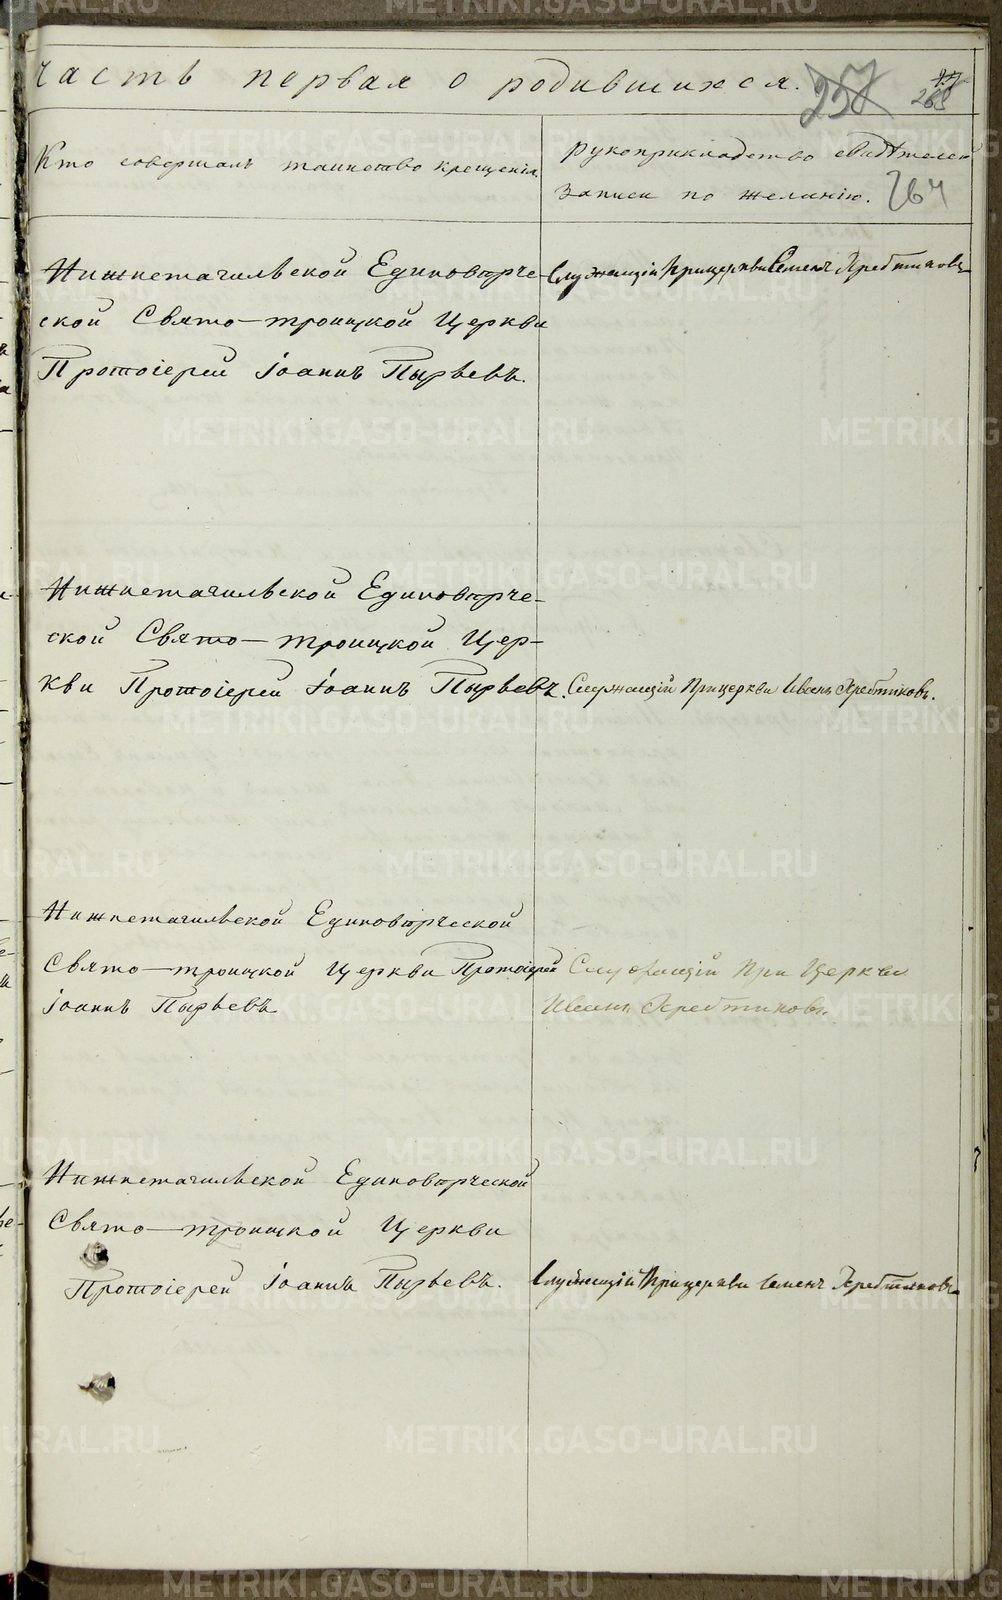 часть первая о родившихся.
257
263
264
Кто совершалъ таинство крещенія.
рукоприкладство свидѣтелей
записи по желанію.
Нижнетагильской Единовѣрче-
ской Свято-троицкой Церкви
Протоіерей Іоаннъ Пырьевъ.
Служащій При церкви Семенъ Хребтиковъ
Нижнетагильской Единовѣрче-
ской Свято-троицкой Цер-
кви Протоіерей Іоаннъ Пырьевъ.
Служащій При церкви Иванъ Хребтиковъ.
Нижнетагильской Единовѣрческой
Свято-троицкой Церкви Протоіерей
Іоаннъ Пырьевъ
Служащій При Церкви
Иванъ Хребтиковъ.
Нижнетагильской Единовѣрческой
Свято-троицкой Церкви
Протоіерей Іоаннъ Пырьевъ.
Служащій При церкви Семенъ Хребтиковъ
METRIKI.GASO-URAL.RU